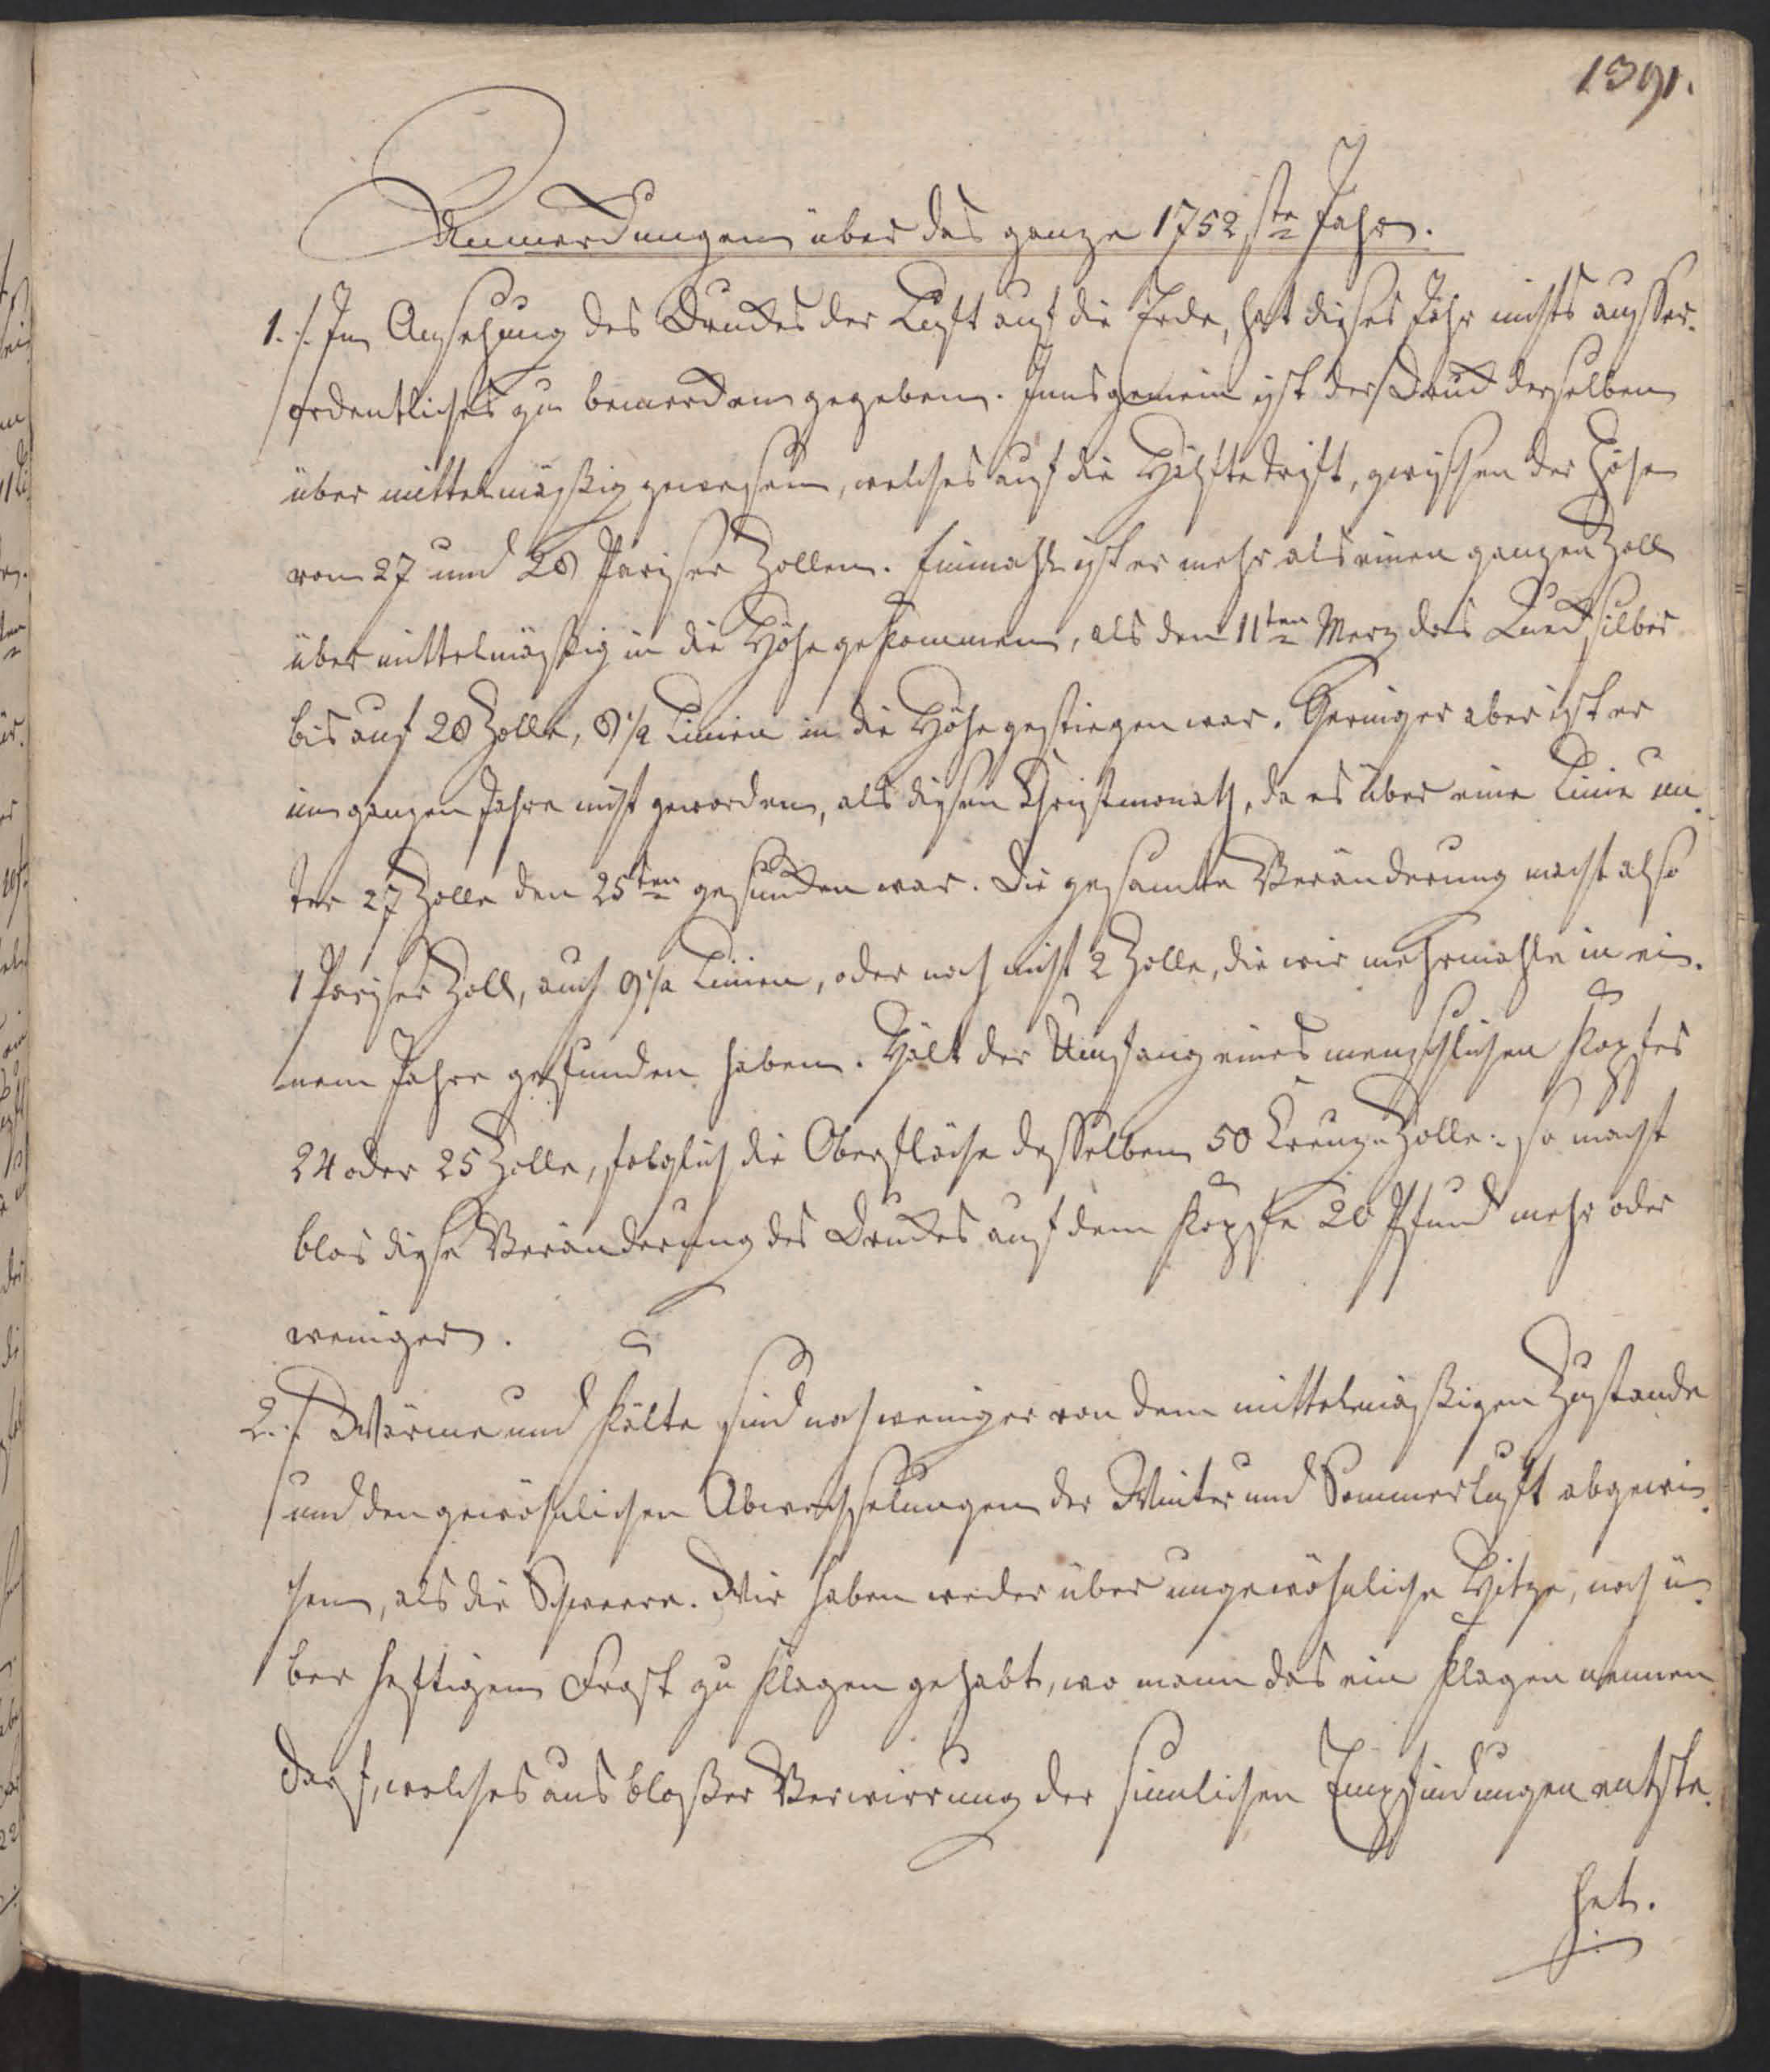 1391.
Anmerckungen über das ganze 1752ste Jahr.
1. /. In Ansehung des Druckes der Luft auf die Erde, hat dieses Jahr nichts ausser-
ordentliches zu bemercken gegeben. Innsgemein ist der Druck derselben
über mittelmäßig gewesen, welches auf die Hälfte trift, zwischen der Höhe
von 27 und 28 Pariser Zollen. Einmahl ist er mehr als einen ganzen Zoll
über mittelmäßig in die Höhe gekommen, als den 11ten Merz das Quecksilber
bis auf 28 Zolle, 8 1/2 Linien in die Höhe gestiegen war. Geringer aber ist er
im ganzen Jahre nicht geworden, als diesen Christmonath, da es über eine Linie un-
ter 27 Zolle den 25ten gesuncken war. Die gesamte Veränderung macht also
1 Pariser Zoll, auch 9 1/2 Linien, oder noch nicht 2 Zolle, die wir mehrmahle in ei-
nem Jahre gefunden haben. Hält der Umfang eines menschlichen Kopfes
24 oder 25 Zolle, folglich die Oberfläche desselben 50 Kreuz-Zolle: so macht
blos diese Veränderung des Druckes auf dem Kopfe 20 Pfund mehr oder
weniger.
2. /. Wärme und Kälte sind noch weniger von dem mittelmäßigen Zustande
und den gewöhnlichen Abwechselungen der Winter und Sommerluft abgewi-
chen, als die Schwere. Wir haben weder über ungewöhnliche Hitze, noch ü-
ber heftigen Frost zu klagen gehabt, wo mann das ein Klagen nennen
darf, welches aus bloßer Verwirrung der sinnlichen Empfindungen entste-
het.